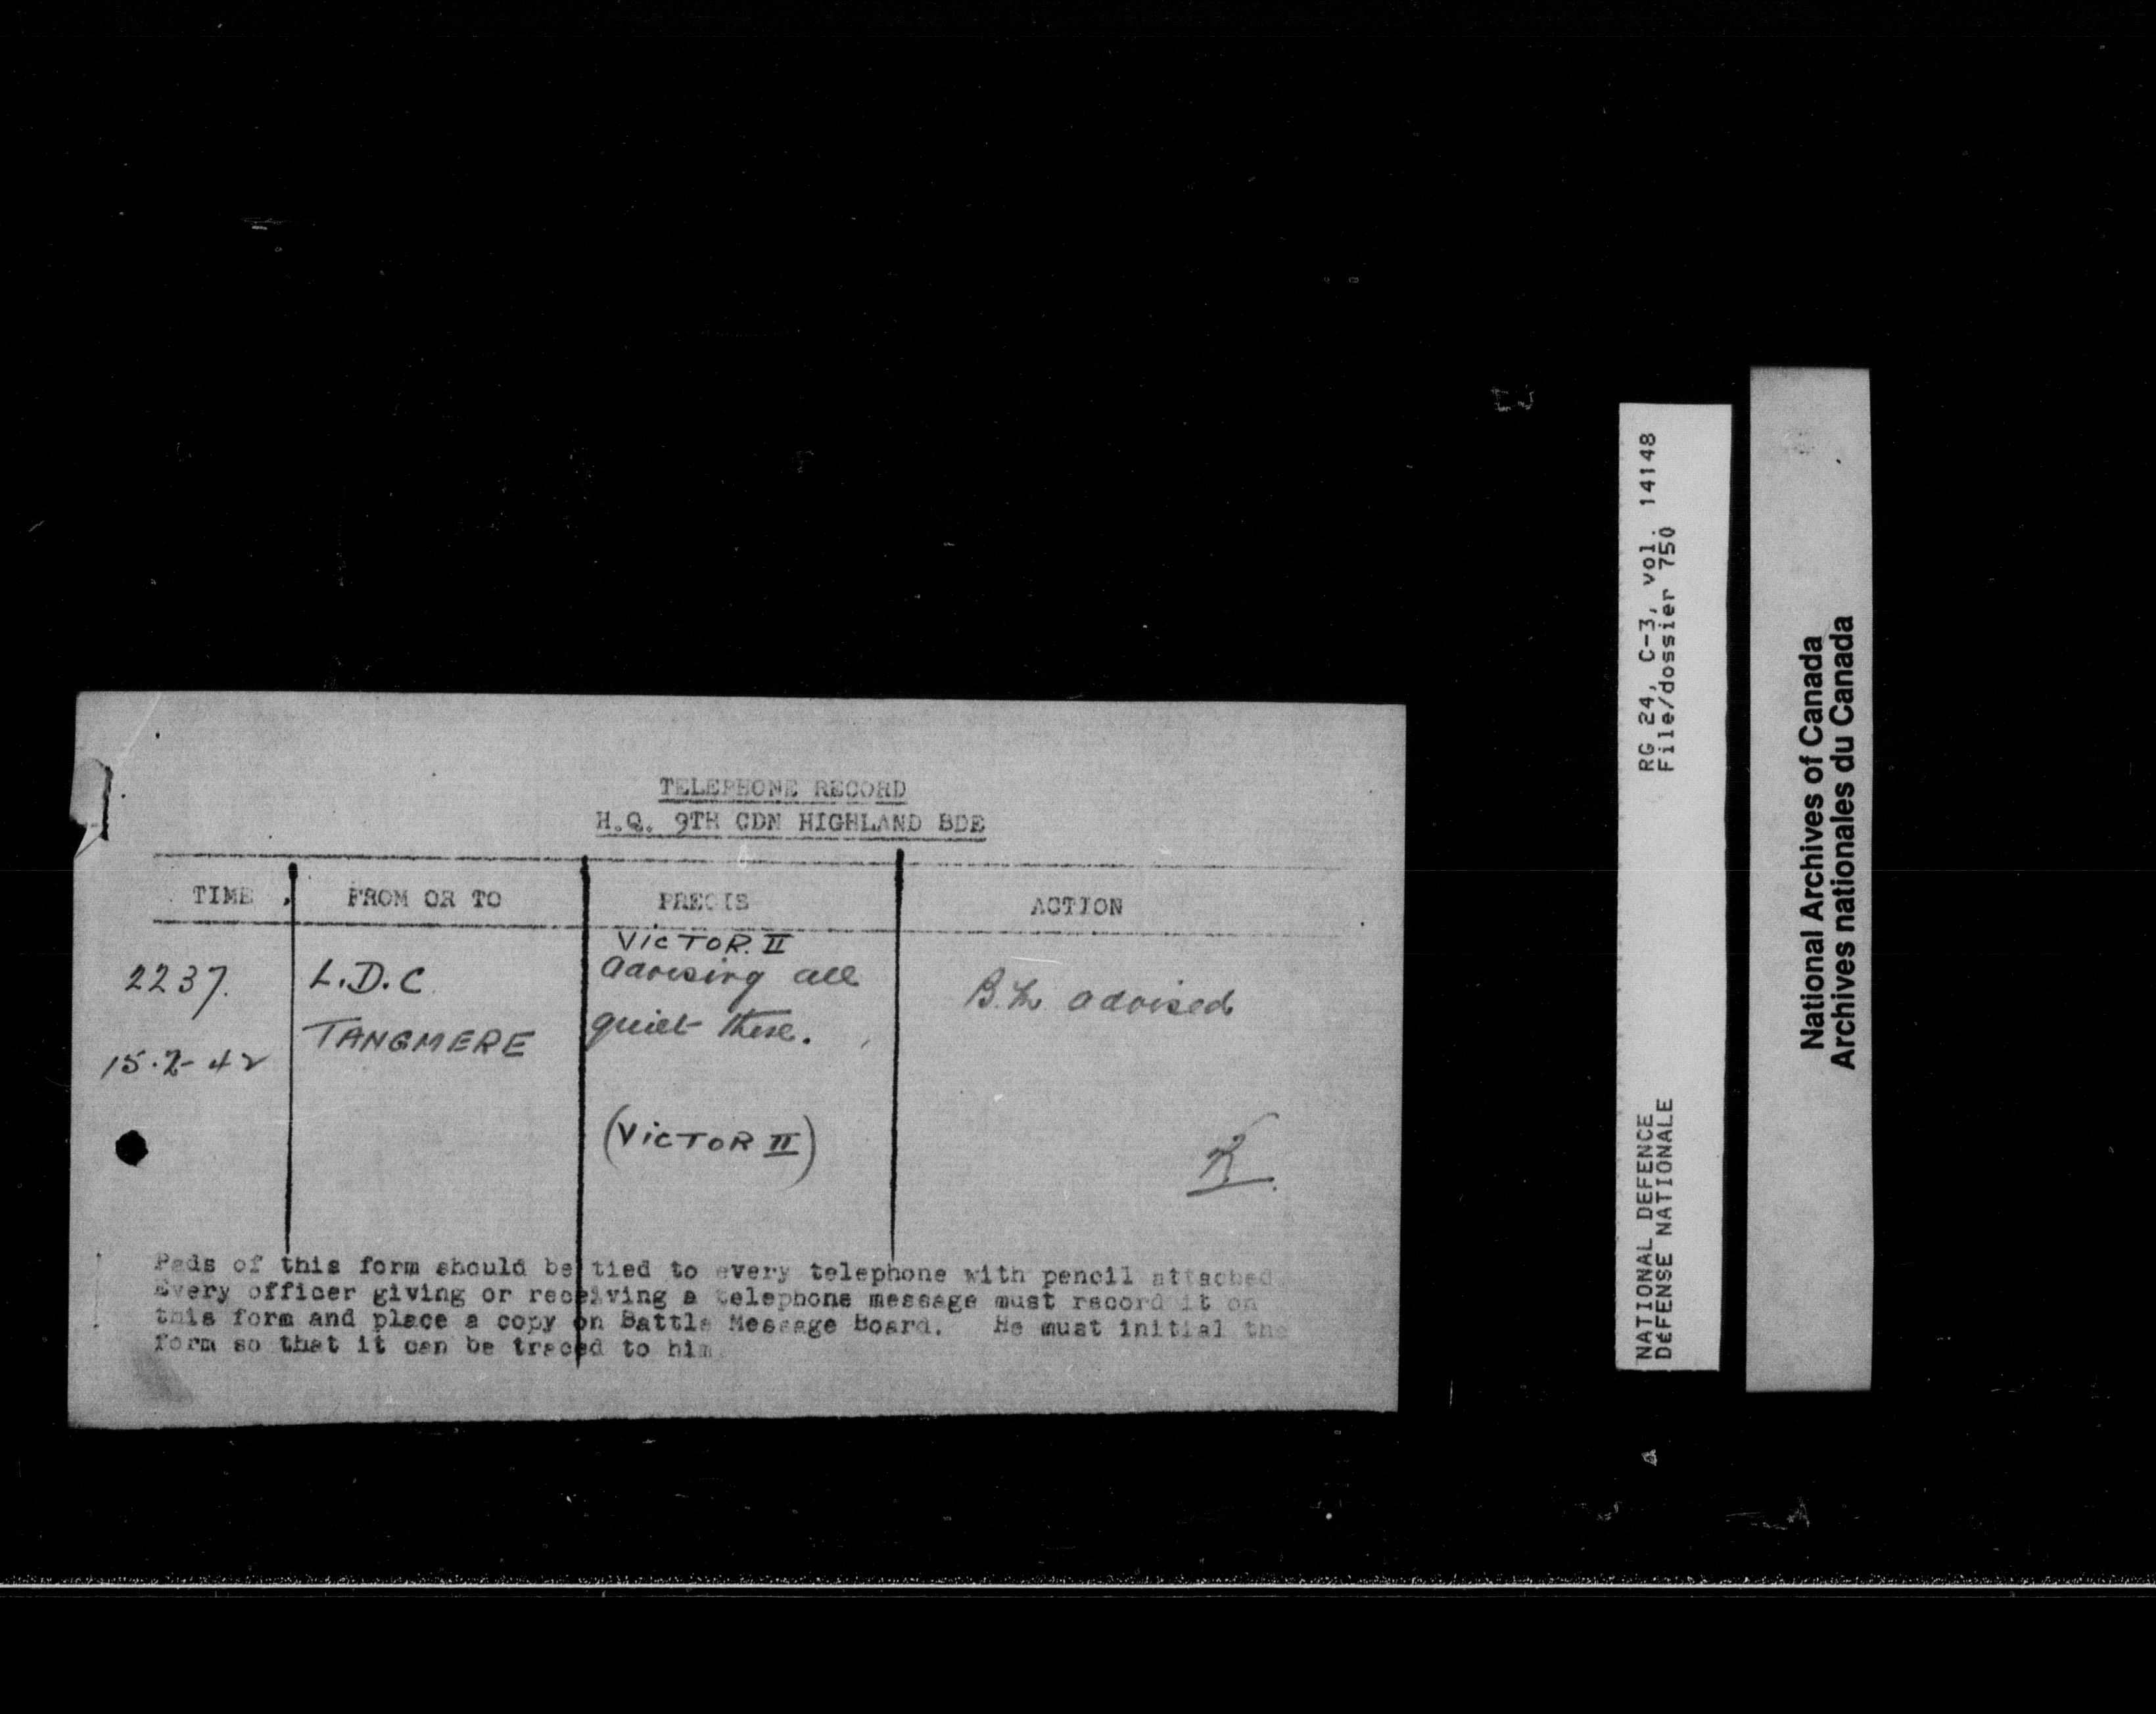 TELEPHONE RECORD
H.Q. 9TH CDN HIGHLAND BDE
TIME FROM OR TO PRECIS ACTION
VICTOR. II
2237. L.D.C advising all B.M. advised
TANGMERE quiet there.
15.2-42
(VICTOR II)
Pads of this form should be tied to every telephone with pencil attached.
Every officer giving or receiving a telephone message must record it on
this form and place a copy on Battle Message Board. He must initial the
form so that it can be traced to him.
RG 24, C-3, vol. 14148
File/dossier 750
NATIONAL DEFENCE
DéFENSE NATIONALE
National Archives of Canada
Archives nationales du Canada